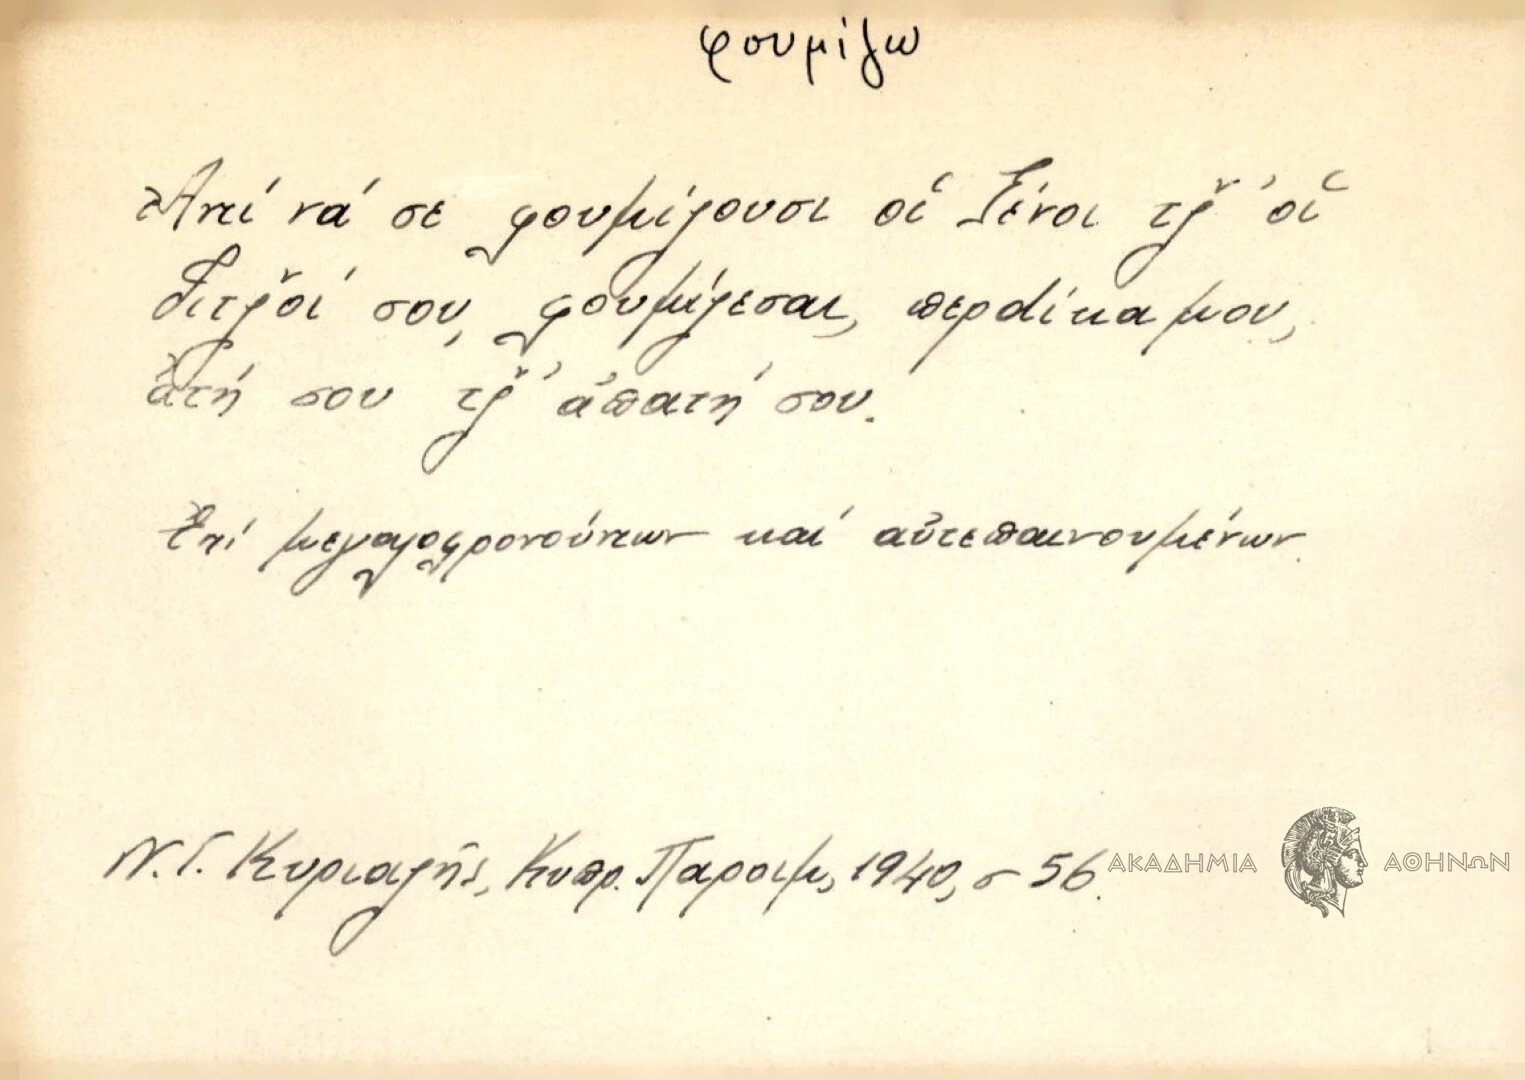 φουμίζω
Ἀντί νά σε φουμίζουσι οἱ ξένοι τζ̌' οἱ
διτζ̌οί σου, φουμίζεσαι, περdίκα μου,
ἀτή σου τζ̌' ἀπατή σου.
Ἐπί μεγαλοφρονούντων καί αὐτεπαινουμένων.
Ν. Γ. Κυριαζῆς, Κυπρ. Παροιμ, 1940, σ 56.
ΑΚΑΔΗΜΙΑ ΑΘΗΝΩΝ